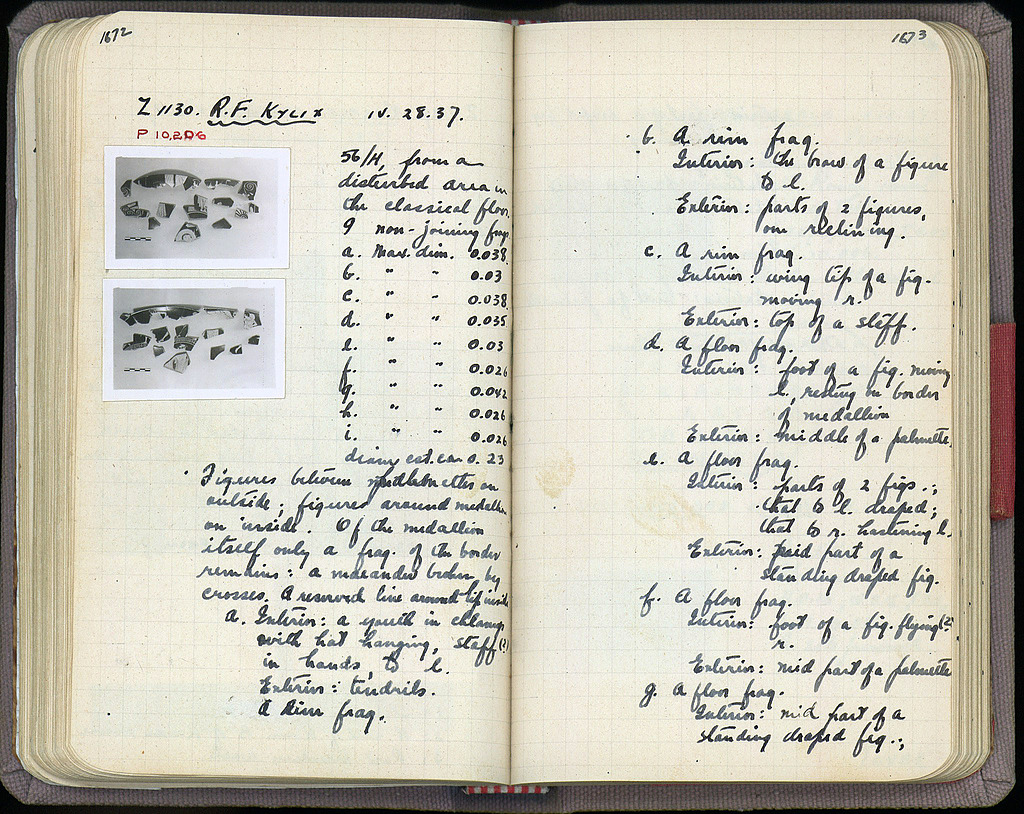 1672
Z 1130. R.F. KYLIX IV. 28.37.
P 10,206
56/H, from a
disturbed area in
the classical floor.
9 non-joining frags
a. Max. dim. 0.038
b. " " 0.03
c. " " 0.038
d. " " 0.035
e. " " 0.03
f. " " 0.026
g. " " 0.042
h. " " 0.026
i. " " 0.026
diam. est. ca. 0.23
Figures between palmettes on
outside; figures around medallion
on inside. Of the medallion
itself only a frag. of the border
remains: a maeander broken by
crosses. A reserved line around lip inside
a. Interior: a youth in chlamys
with hat hanging, staff (?)
in hands, to l.
Exterior: tendrils.
A rim frag.
1673
b. A rim frag.
Interior: the brow of a figure
to l.
Exterior: parts of 2 figures,
one reclining.
c. A rim frag.
Interior: wing tip of a fig.
moving r.
Exterior: top of a staff.
d. A floor frag.
Interior: foot of a fig. moving
l., resting on border
of medallion
Exterior: middle of a palmette.
e. A floor frag.
Interior: parts of 2 figs.;
that to l. draped;
that to r. hastening l.
Exterior: mid part of a
standing draped fig.
f. A floor frag.
Interior: foot of a fig. flying (?)
r.
Exterior: mid part of a palmette
g. A floor frag.
Interior: mid part of a
standing draped fig.;